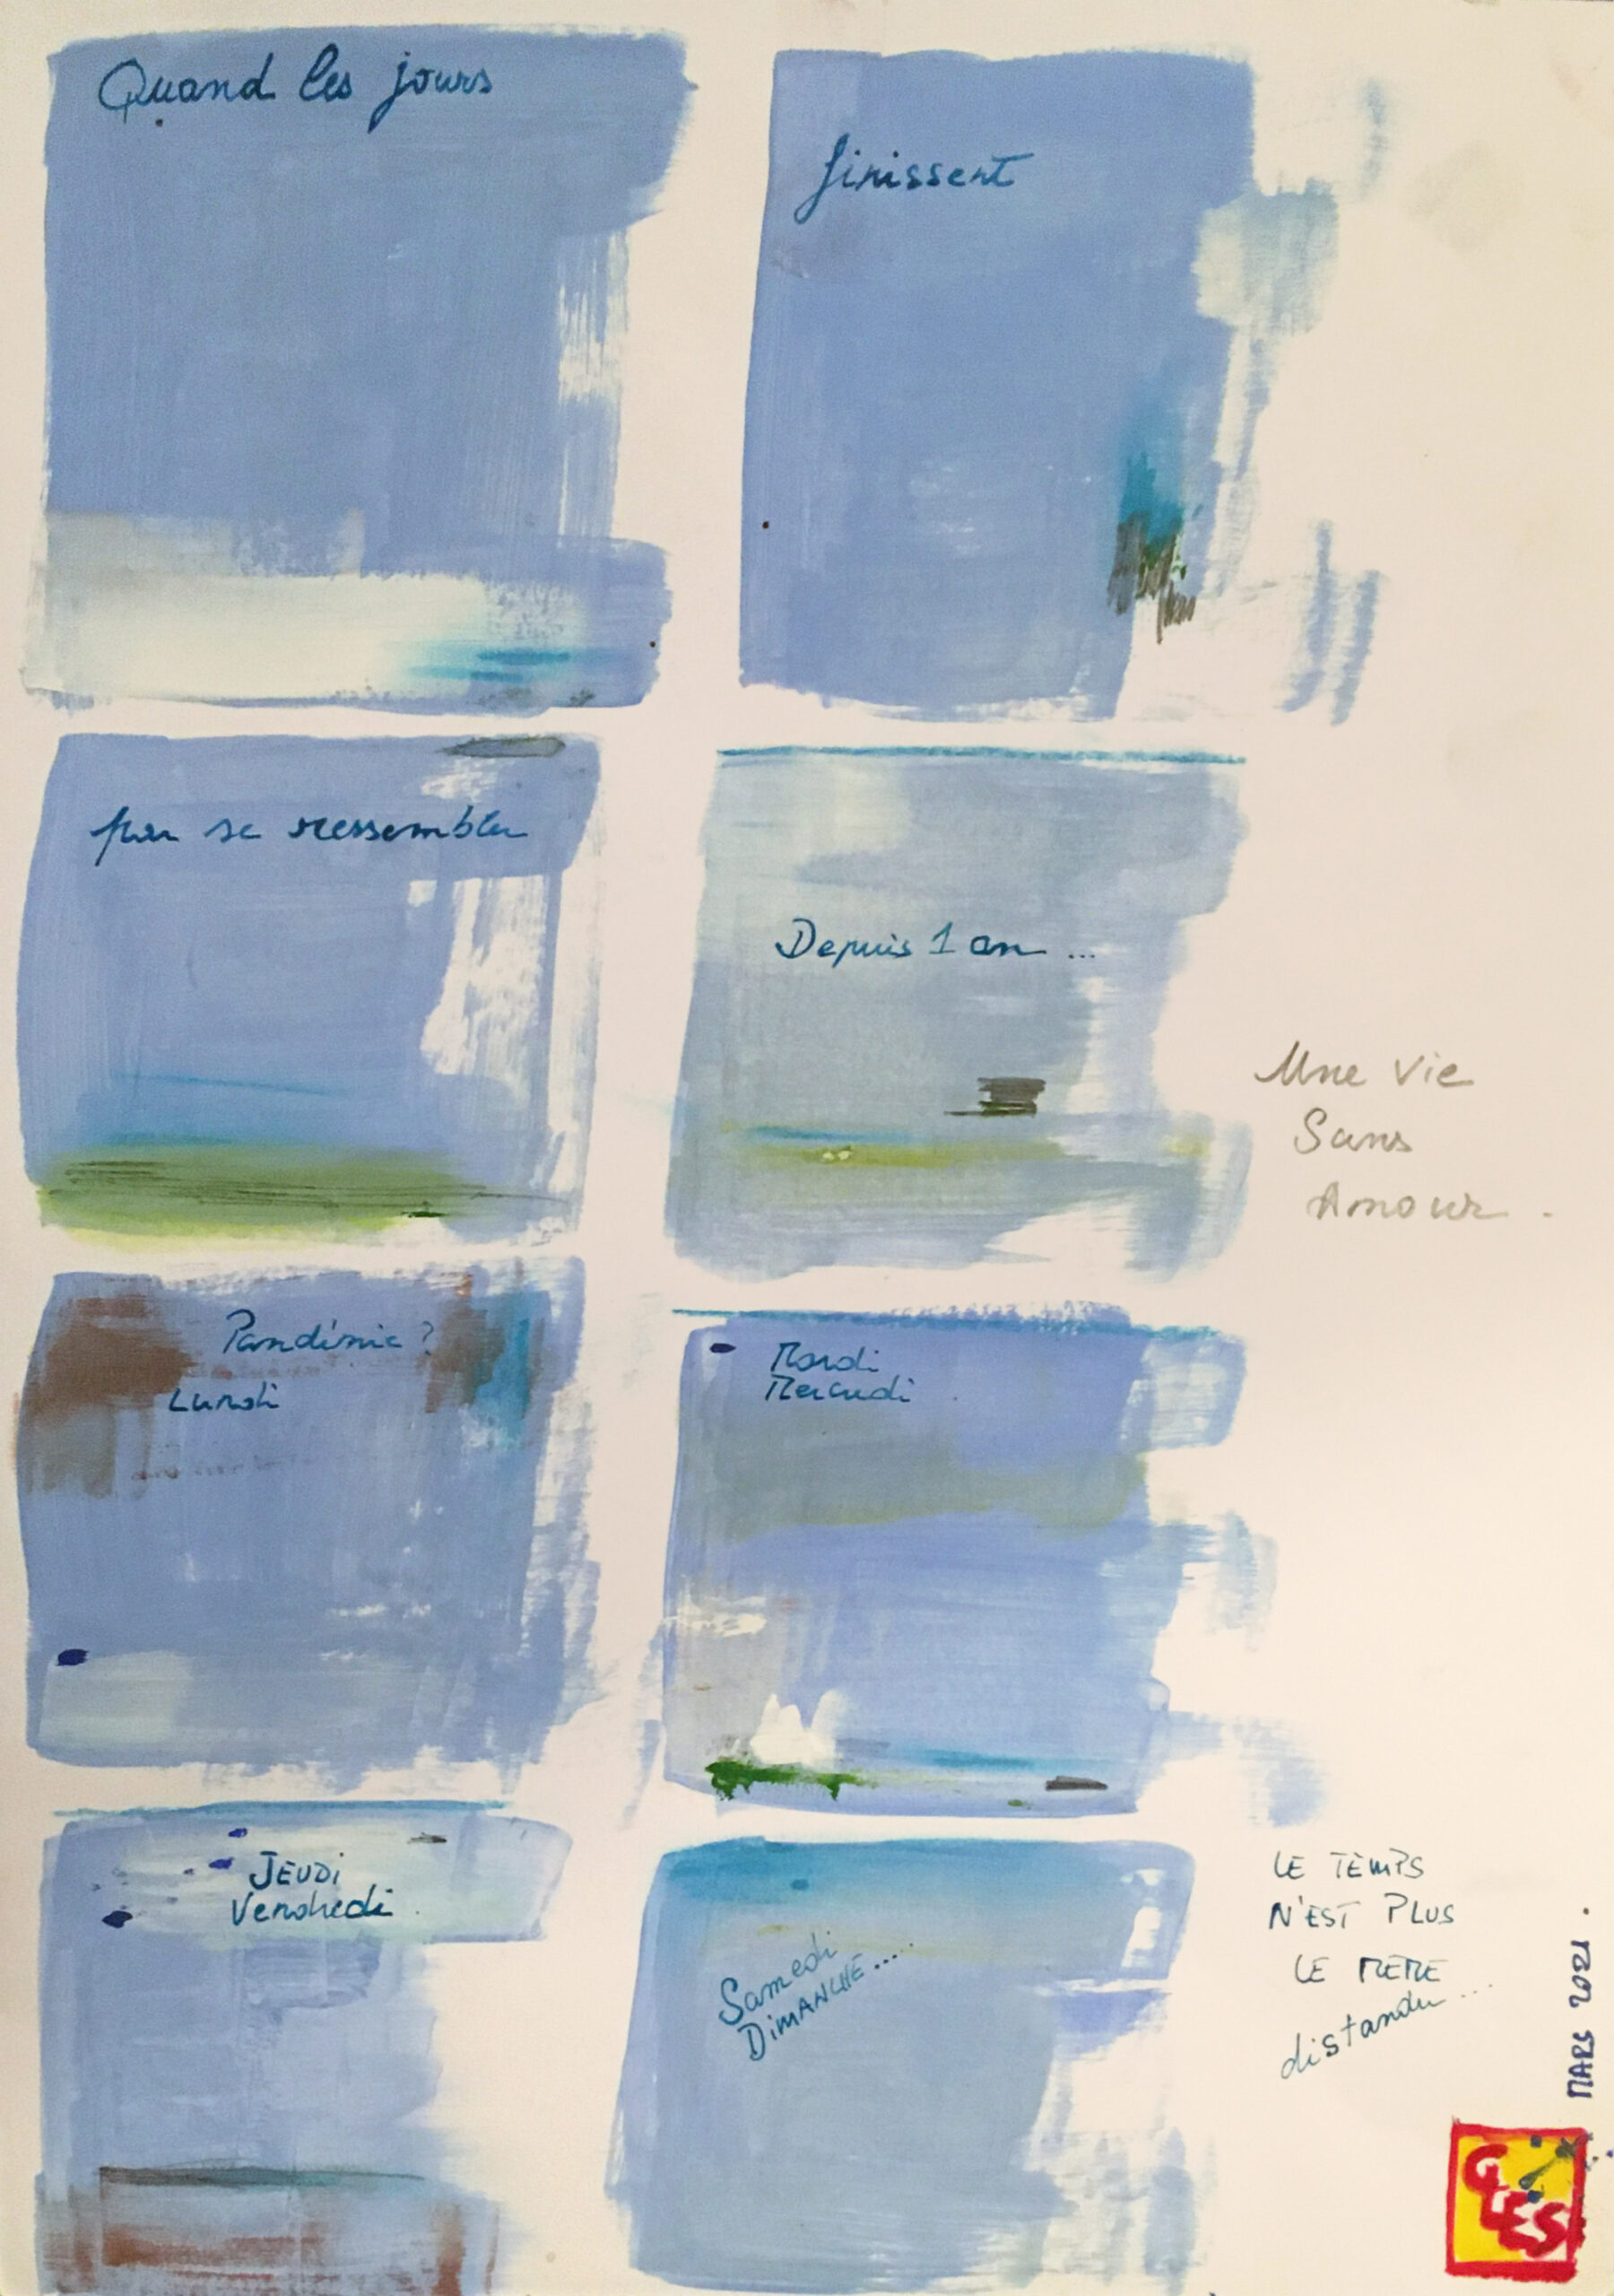 Quand les jours
finissent
par se ressembler
Depuis 1 an ...
Une vie
Sans
Amour .
Pandémie ?
Lundi
Mardi
Mercredi .
JEUDi
Vendredi .
Samedi
DiMANCHE ....
LE TEMPS
N'EST PLUS
LE MEME
distandu ...
MARS 2021 .
GLES